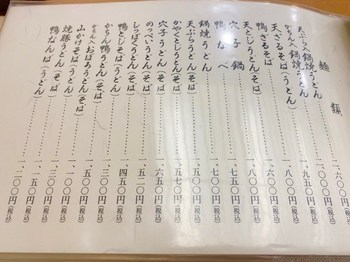 麺類
天ぷら入鍋焼うどん
かちん入鍋焼うどん
天ざるそば(うどん)
鴨ざるそば
天とじうどん(そば)
穴子鍋
鴨なべ
鍋焼うどん
天ぷらうどん(そば)
かやくとじうどん(そば)
穴子うどん(そば)
のっぺいうどん(そば)
しっぽくうどん(そば)
鴨とじそば(うどん)
かちん鴨うどん(そば)
かちんおぼろうどん(そば)
山かけそば(うどん)
焼豚うどん(そば)
鴨なんば(うどん)
一、九五〇円(税込)
一、八〇〇円(税込)
一、六〇〇円(税込)
一、八〇〇円(税込)
一、七五〇円(税込)
一、七〇〇円(税込)
一、五〇〇円(税込)
一、五七〇円(税込)
一、六五〇円(税込)
一、五二〇円(税込)
一、四五〇円(税込)
一、三〇〇円(税込)
一、五〇〇円(税込)
一、一〇〇円(税込)
一、一五〇円(税込)
一、二〇〇円(税込)